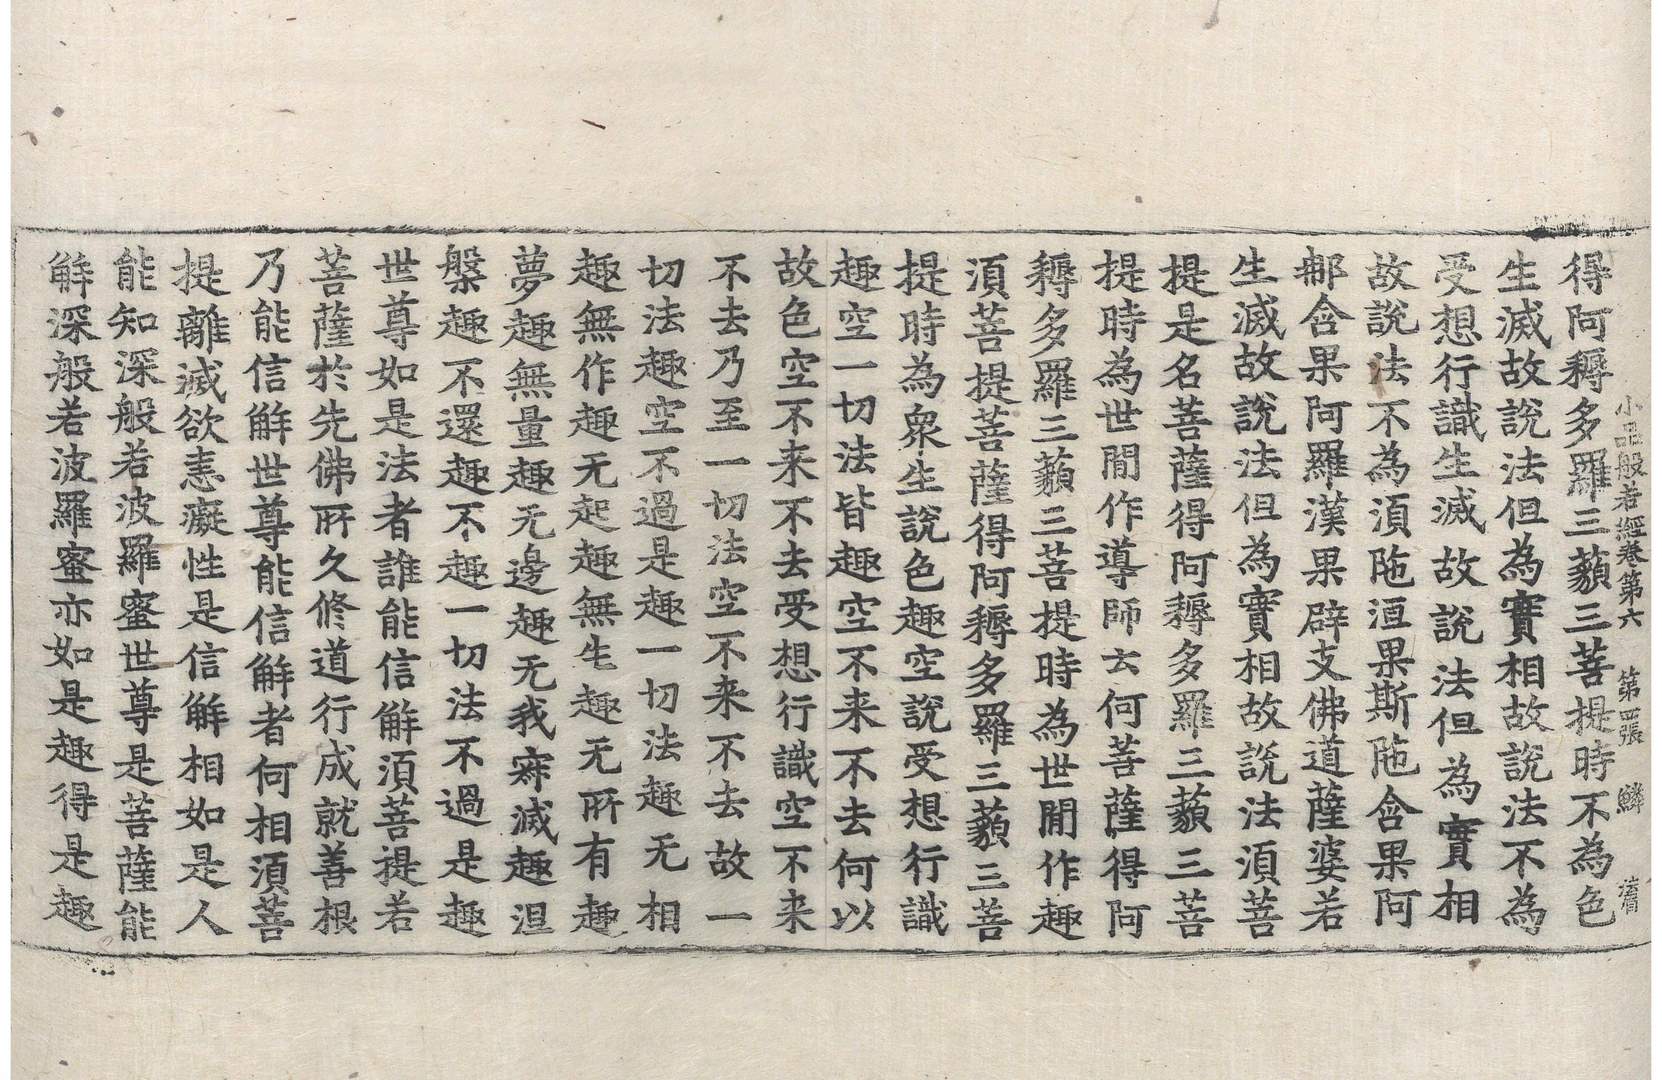 小品般若經卷第六 第四張 鱗
得阿耨多羅三藐三菩提時不為色
生滅故說法但為實相故說法不為
受想行識生滅故說法但為實相
故說法不為須陁洹果斯陁含果阿
那含果阿羅漢果辟支佛道薩婆若
生滅故說法但為實相故說法須菩
提是名菩薩得阿耨多羅三藐三菩
提時為世間作導師云何菩薩得阿
耨多羅三藐三菩提時為世間作趣
須菩提菩薩得阿耨多羅三藐三菩
提時為衆生說色趣空說受想行識
趣空一切法皆趣空不来不去何以
故色空不来不去受想行識空不来
不去乃至一切法空不来不去故一
切法趣空不過是趣一切法趣无相
趣無作趣无起趣無生趣无所有趣
夢趣無量趣无邊趣无我寂滅趣涅
槃趣不還趣不趣一切法不過是趣
世尊如是法者誰能信解須菩提若
菩薩於先佛所久修道行成就善根
乃能信解世尊能信解者何相須菩
提離滅欲恚癡性是信解相如是人
能知深般若波羅蜜世尊是菩薩能
解深般若波羅蜜亦如是趣得是趣